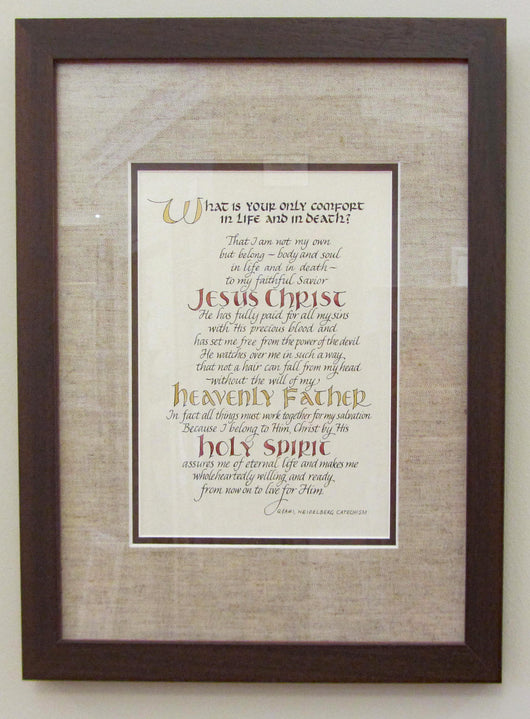 What is your only comfort
in life and in death?
That I am not my own
but belong – body and soul
in life and in death –
to my faithful Savior
Jesus Christ
He has fully paid for all my sins
with His precious blood and
has set me free from the power of the devil
He watches over me in such a way,
that not a hair can fall from my head
without the will of my
heavenly Father
In fact all things must work together for my salvation
Because I belong to Him, Christ by His
Holy Spirit
assures me of eternal life and makes me
wholeheartedly willing and ready,
from now on to live for Him.
Q&A #1, HEIDELBERG CATECHISM